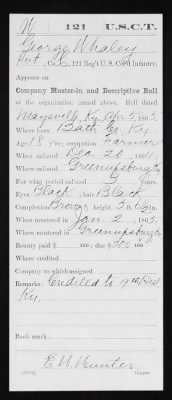 W 121 U.S.C.T.
George Whaley
Pvt, Co. , 121 Reg't U. S. Col'd Infantry.
Appears on
Company Muster-in and Descriptive Roll
of the organization named above. Roll dated
Maysville, Ky, Apr 5, 1865.
Where born Bath Co, Ky
Age 18 y'rs; occupation Farmer
When enlisted Dec. 20, 1864.
Where enlisted Greenupsburg Ky
For what period enlisted years.
Eyes Black; hair Black
Complexion Bronze; height 5 ft. in.
When mustered in Jan. 2, 1865.
Where mustered in Greenupsburg Ky
Bounty paid $ 100; due $ 300 100
Where credited
Company to which assigned
Remarks: Credited to 9th Dist
Ky.
Book mark:
E W Hunter
Copyist.